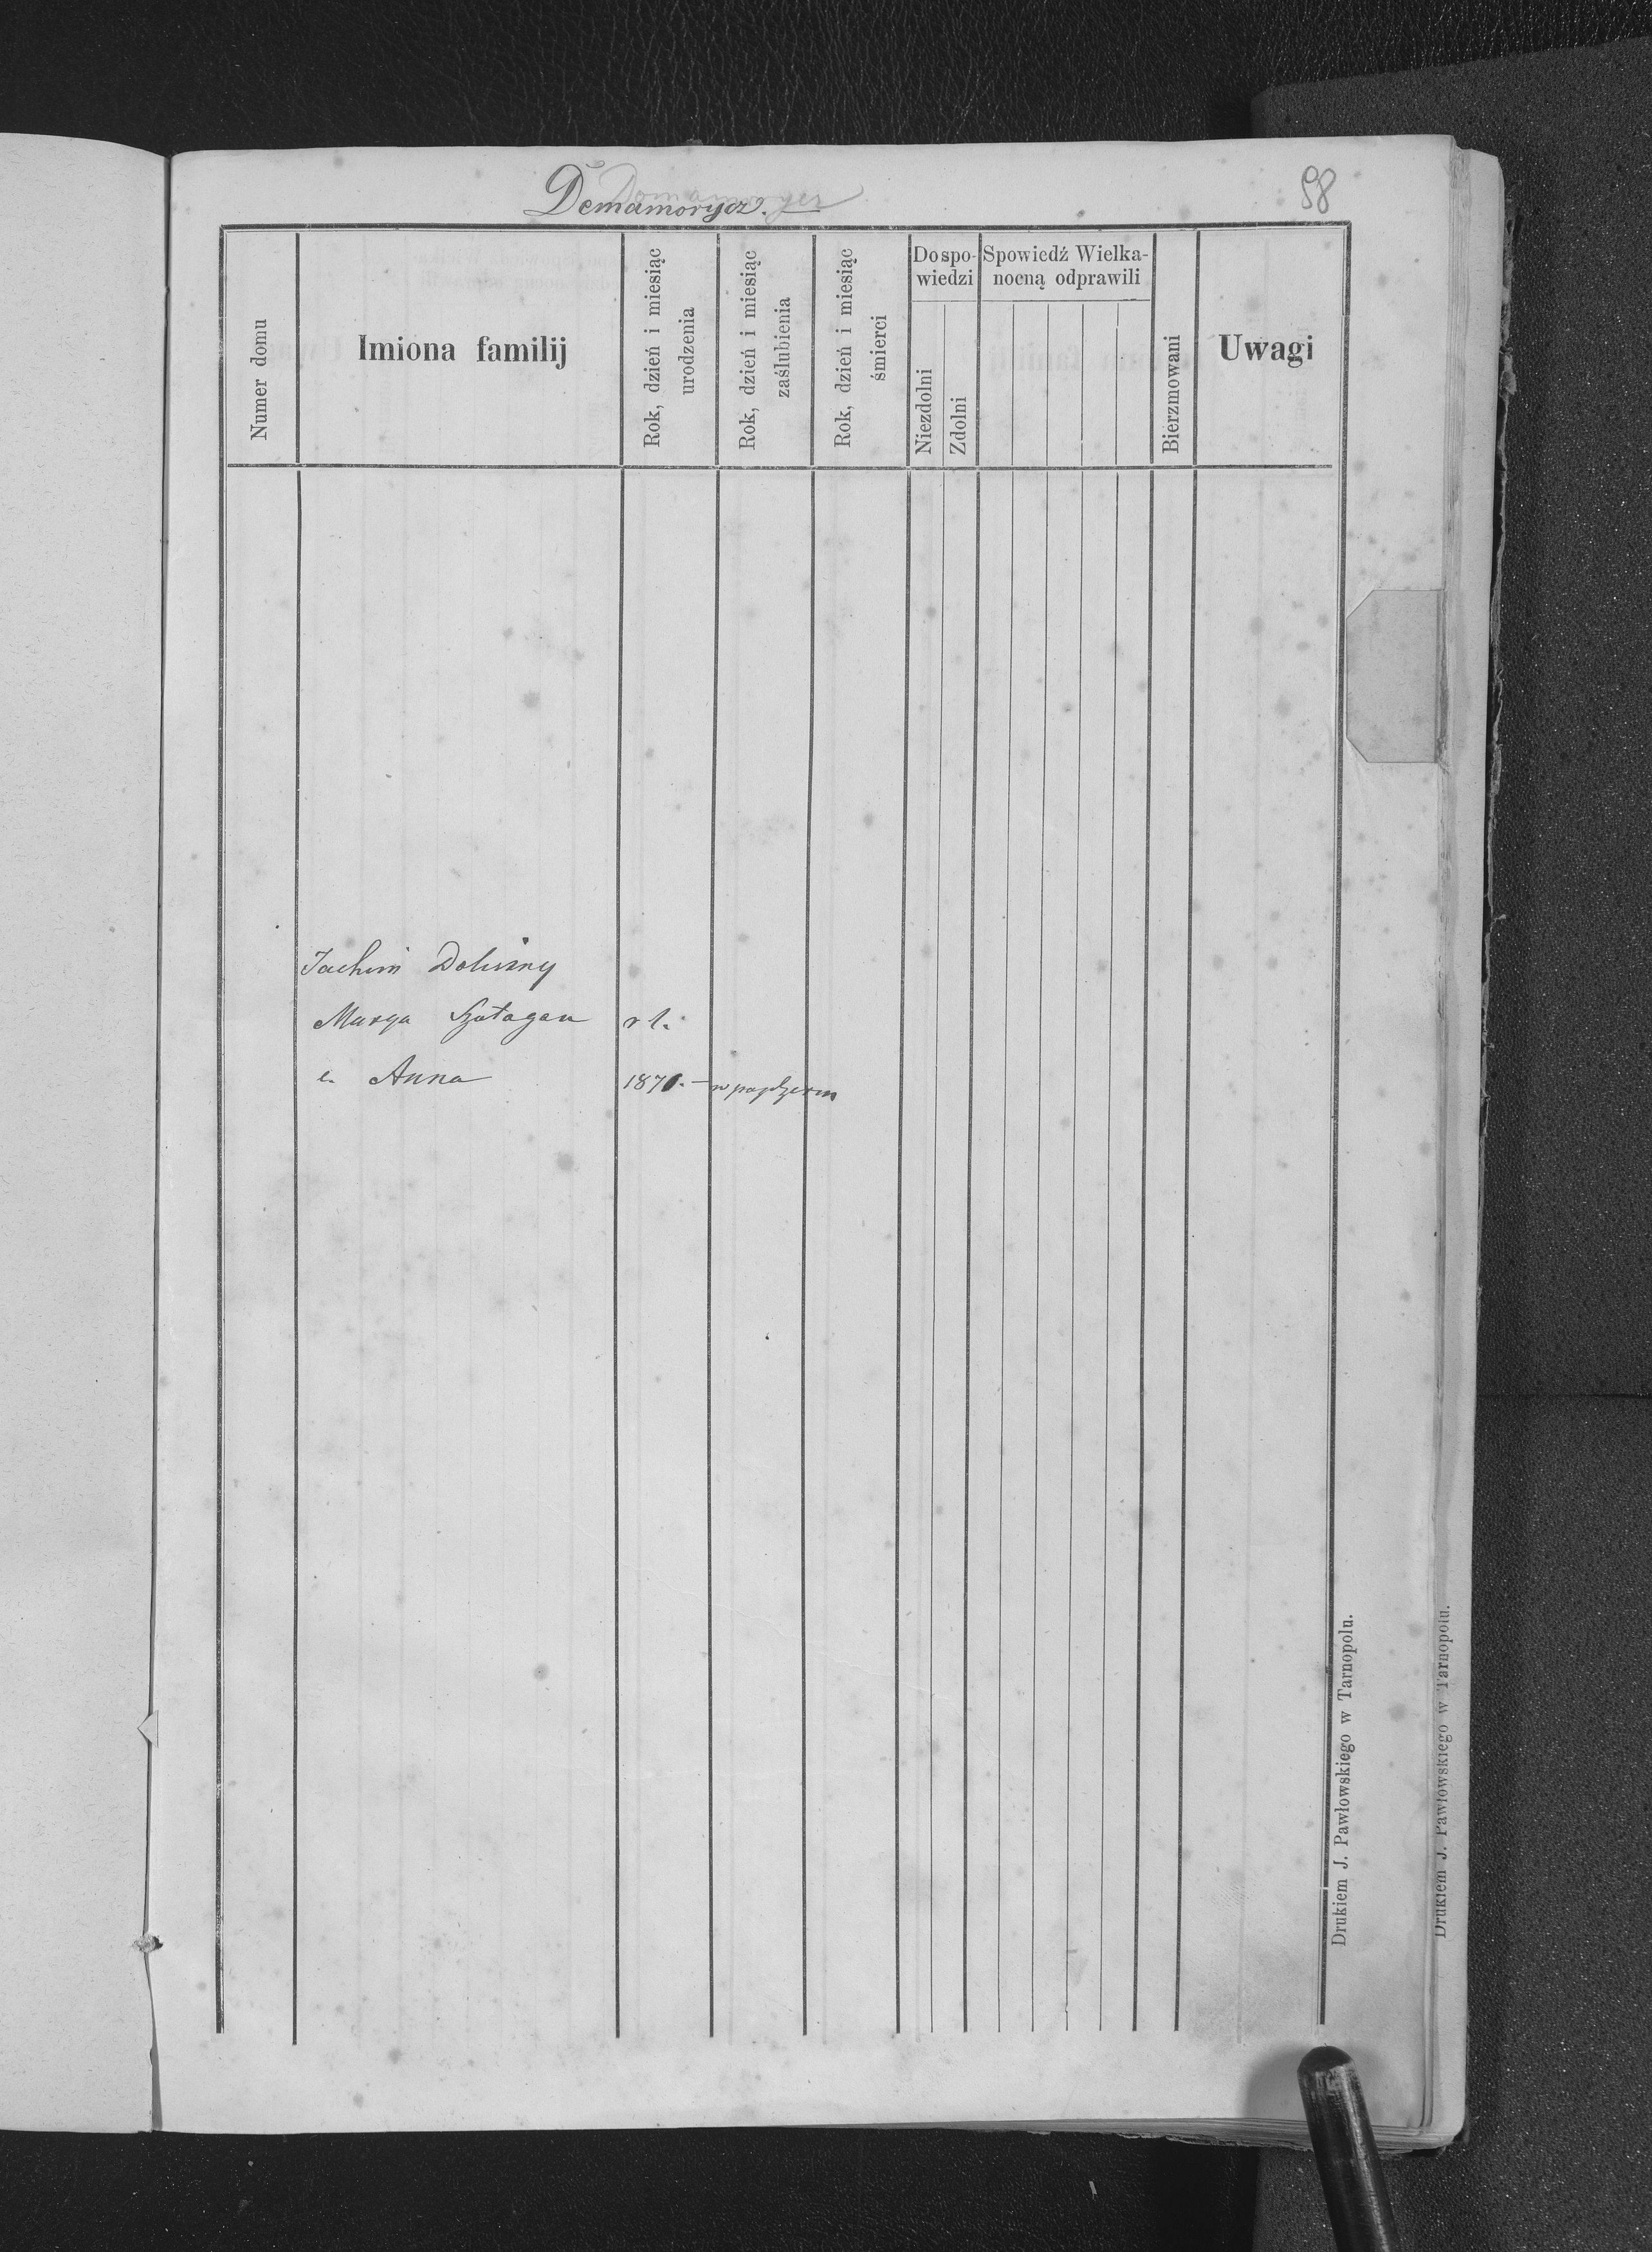 Demamorycz.
98
Numer domu
Imiona familij
Rok, dzień i miesiąc
urodzenia
Rok, dzień i miesiąc
zaślubienia
Rok, dzień i miesiąc
śmierci
Do spo-
wiedzi
Niezdolni
Zdolni
Spowiedź Wielka-
nocną odprawili
Bierzmowani
Uwagi
Jachim Doliszny
Marya r l.
c. Anna 1870. — w
Drukiem J. Pawłowskiego w Tarnopolu.
Drukiem J. Pawłowskiego w Tarnopolu.